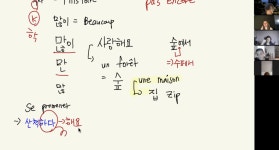 pas encore
많이 = Beaucoup
많이 사랑해요 숲에서
만 un forêt ⇒ 수페서
많 = 숲 une maison
집 zip
se promener
→ 산책하다 → 해요